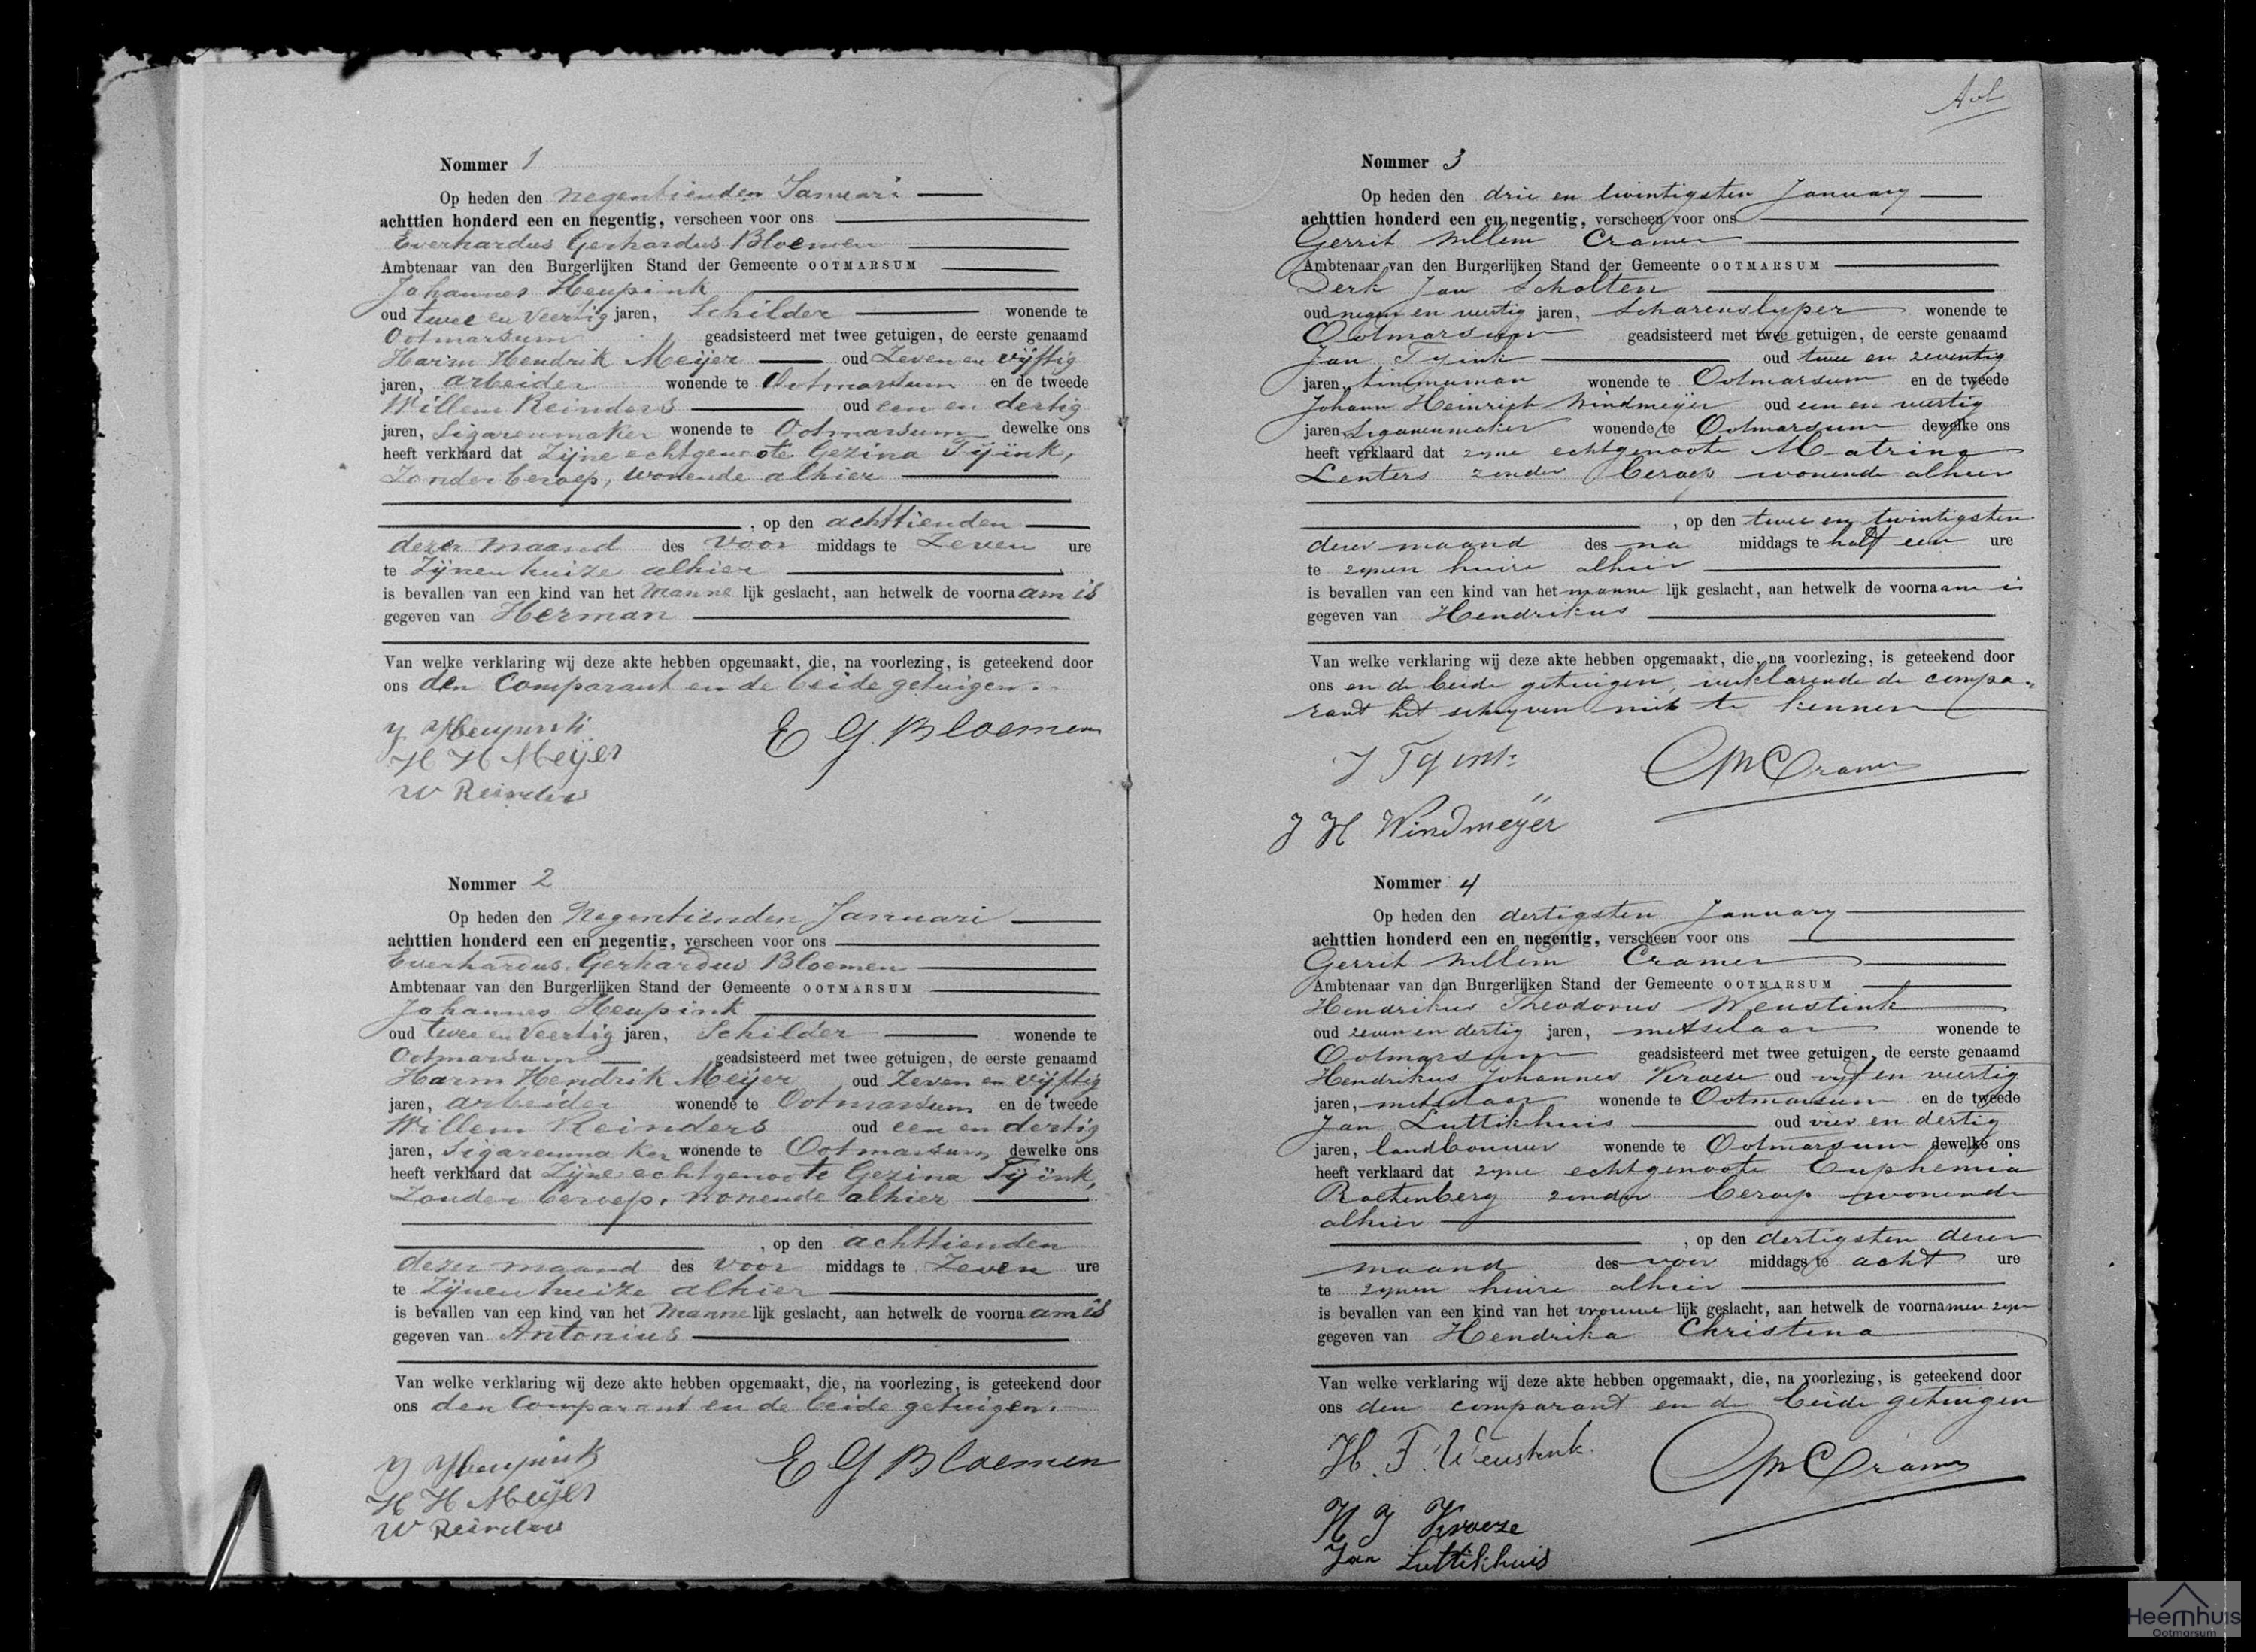 Nommer 1
Op heden den negentienden Januari
achttien honderd een en negentig, verscheen voor ons
Everhardus Gerhardus Bloemen
Ambtenaar van den Burgerlijken Stand der Gemeente OOTMARSUM
Johannes Heupink
oud twee en Veertig jaren, Schilder wonende te
Ootmarsum geadsisteerd met twee getuigen, de eerste genaamd
Harm Hendrik Meijer oud Zeven en vijftig
jaren, arbeider wonende te Ootmarsum en de tweede
Willem Reinders oud een en dertig
jaren, Sigarenmaker wonende te Ootmarsum dewelke ons
heeft verklaard dat Zijne echtgenoote Gezina Tijink,
Zonder beroep, wonende alhier
, op den achttienden
dezer maand des voor middags te Zeven ure
te Zijnen huize alhier
is bevallen van een kind van het manne lijk geslacht, aan hetwelk de voornaam is
gegeven van Herman
Van welke verklaring wij deze akte hebben opgemaakt, die, na voorlezing, is geteekend door
ons den Comparant en de beide getuigen.
J Heupink
E G. Bloemen
H H Meijer
W Reinders
Nommer 2
Op heden den Negentienden Januari
achttien honderd een en negentig, verscheen voor ons
Everhardus Gerhardus Bloemen
Ambtenaar van den Burgerlijken Stand der Gemeente OOTMARSUM
Johannes Heupink
oud twee en Veertig jaren, Schilder wonende te
Ootmarsum geadsisteerd met twee getuigen, de eerste genaamd
Harm Hendrik Meijer oud Zeven en vijftig
jaren, arbeider wonende te Ootmarsum en de tweede
Willem Reinders oud een en dertig
jaren, Sigarenmaker wonende te Ootmarsum dewelke ons
heeft verklaard dat Zijne echtgenoote Gezina Tijink,
Zonder beroep, wonende alhier
, op den achttienden
dezer maand des voor middags te Zeven ure
te Zijnen huize alhier
is bevallen van een kind van het manne lijk geslacht, aan hetwelk de voornaam is
gegeven van Antonius
Van welke verklaring wij deze akte hebben opgemaakt, die, na voorlezing, is geteekend door
ons den Comparant en de beide getuigen.
J Heupink
E G Bloemen
H H Meijer
W Reinders
Nommer 3
Op heden den drie en twintigsten January
achttien honderd een en negentig, verscheen voor ons
Gerrit Willem Cramer
Ambtenaar van den Burgerlijken Stand der Gemeente OOTMARSUM
Derk Jan Scholten
oud negen en veertig jaren, Scharenslyper wonende te
Ootmarsum geadsisteerd met twee getuigen, de eerste genaamd
Jan Tyink oud twee en zeventig
jaren, timmerman wonende te Ootmarsum en de tweede
Johann Heinrich Windmeijer oud een en veertig
jaren, Sigarenmaker wonende te Ootmarsum dewelke ons
heeft verklaard dat zyne echtgenoote Matrina
Lenters zonder beroep wonende alhier
, op den twee en twintigsten
dezer maand des na middags te half een ure
te zynen huize alhier
is bevallen van een kind van het manne lijk geslacht, aan hetwelk de voornaam is
gegeven van Hendrikus
Van welke verklaring wij deze akte hebben opgemaakt, die, na voorlezing, is geteekend door
ons en de beide getuigen, verklarende de compa-
rant het schryven niet te kennen
J Tyink
GWCramer
J H Windmeÿer
Nommer 4
Op heden den dertigsten January
achttien honderd een en negentig, verscheen voor ons
Gerrit Willem Cramer
Ambtenaar van den Burgerlijken Stand der Gemeente OOTMARSUM
Hendrikus Theodorus Weustink
oud zeven en dertig jaren, metselaar wonende te
Ootmarsum geadsisteerd met twee getuigen, de eerste genaamd
Hendrikus Johannes Kroese oud vyf en veertig
jaren, metselaar wonende te Ootmarsum en de tweede
Jan Luttikhuis oud vier en dertig
jaren, landbouwer wonende te Ootmarsum dewelke ons
heeft verklaard dat zyne echtgenoote Euphemia
Roetenberg zonder beroep wonende
alhier
, op den dertigsten dezer
maand des voor middags te acht ure
te zynen huize alhier
is bevallen van een kind van het vrouwe lijk geslacht, aan hetwelk de voornamen zyn
gegeven van Hendrika Christina
Van welke verklaring wij deze akte hebben opgemaakt, die, na voorlezing, is geteekend door
ons den comparant en de beide getuigen
H. T. Weustink.
GWCramer
H J Kroeze
Jan Luttikhuis
Heemhuis
Ootmarsum